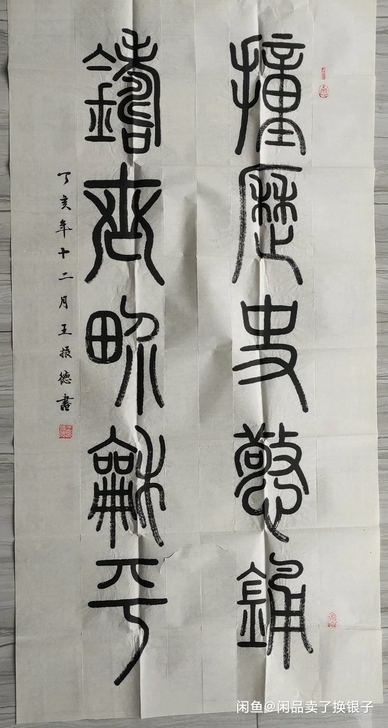 撞歷史警鐘
鑄世界龢平
丁亥年十二月王振德書
闲鱼@闲品卖了换银子